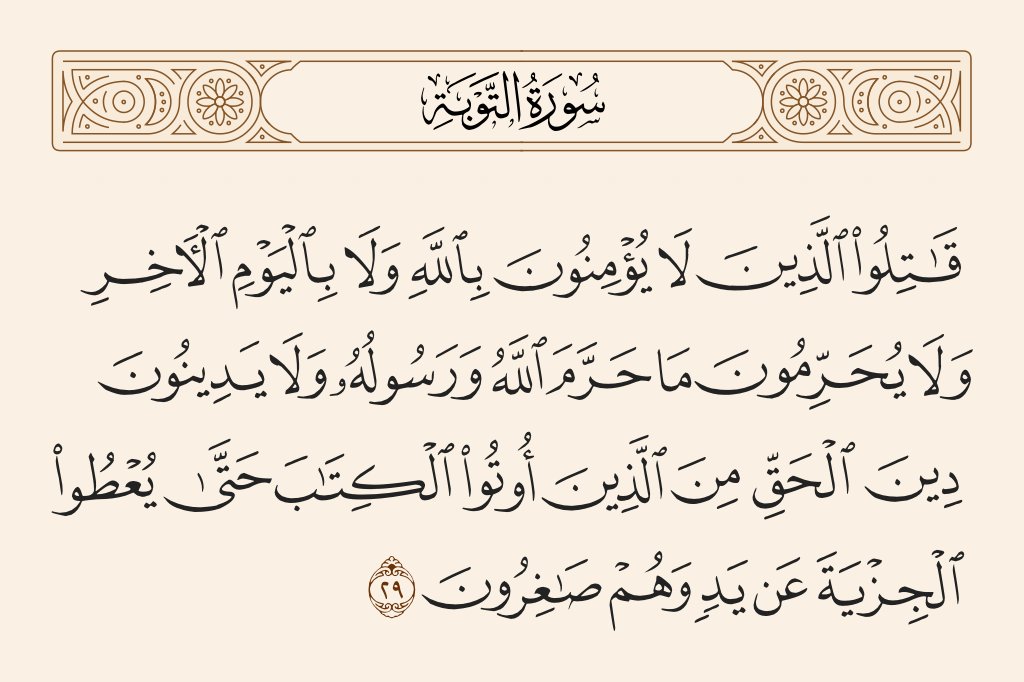 سُورَةُ التَّوۡبَةِ
قَٰتِلُواْ ٱلَّذِينَ لَا يُؤۡمِنُونَ بِٱللَّهِ وَلَا بِٱلۡيَوۡمِ ٱلۡأٓخِرِ
وَلَا يُحَرِّمُونَ مَا حَرَّمَ ٱللَّهُ وَرَسُولُهُۥ وَلَا يَدِينُونَ
دِينَ ٱلۡحَقِّ مِنَ ٱلَّذِينَ أُوتُواْ ٱلۡكِتَٰبَ حَتَّىٰ يُعۡطُواْ
ٱلۡجِزۡيَةَ عَن يَدٖ وَهُمۡ صَٰغِرُونَ ٢٩